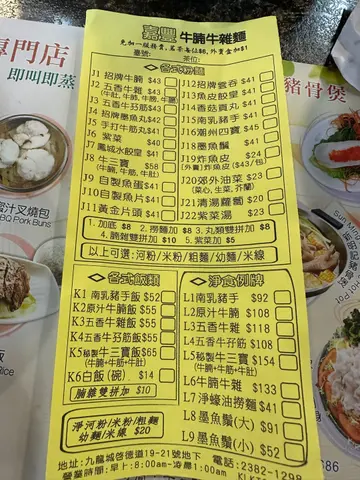 嘉豐 牛腩牛雜麵
免加一服務費,茗茶每位$8,外賣盒加$1
臺號:
茶位:
各式粉麵
J1 招牌牛腩 $43
J2 五香牛雜 $43
(牛肚, 牛筋, 牛膀, 牛腸)
J3 五香牛孖筋 $43
J4 招牌墨魚丸 $42
J5 手打牛筋丸 $41
J6 紫菜 $40
J7 鳳城水餃皇 $41
J8 牛三寶 $58
(牛腩, 牛筋, 牛肚)
J9 自製魚蛋 $41
J10 自製魚片 $41
J11 黃金片頭 $41
J12 招牌雲吞 $41
J13 魚皮餃皇
J14 香菇貢丸 $41
J15 南乳豬手 $41
J16 潮州四寶 $45
J18 墨魚鬚 $41
J19 炸魚皮 $24
(外賣)炸魚皮 ($43/包)
J20 郊外油菜 $23
(菜心, 生菜, 芥蘭)
J21 清湯蘿蔔 $20
J22 紫菜湯 $23
1. 加底 $8 2. 撈麵加 $8 3. 丸類雙拼加 $8
4. 腩雜雙拼加 $10 5. 紫菜加 $5
以上可選: 河粉/米粉/粗麵/幼麵/米線
各式飯類
K1 南乳豬手飯 $52
K2 原汁牛腩飯 $55
K3 五香牛雜飯 $55
K4 五香牛孖筋飯 $55
K5 秘製牛三寶飯 $65
(牛腩+牛筋+牛肚)
K6 白飯(碗) $14
腩雜雙拼加 $10
淨河粉/米粉/粗麵
幼麵/米線 $20
淨食例牌
L1 南乳豬手 $92
L2 原汁牛腩 $108
L3 五香牛雜 $118
L4 五香牛孖筋 $108
L5 秘製牛三寶 $154
(牛腩+牛筋+牛肚)
L6 牛腩牛雜 $133
L7 淨蠔油撈麵 $41
L8 墨魚鬚(大) $91
L9 墨魚鬚(小) $52
地址: 九龍城啓德道19-21號地下 電話: 2382-1298
營業時間: 早上8:00am-凌晨1:00am
專門店
即叫即蒸
豬骨煲
蜜汁叉燒包
BQ Pork Buns
飯
Rice